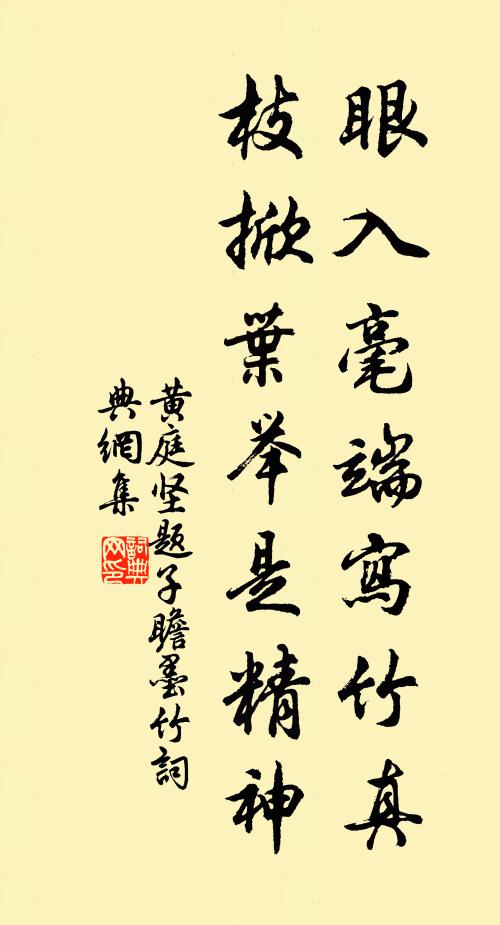 眼入毫端寫竹真
枝掀葉举是精神
黄庭坚題子瞻墨竹詞
典網集
詞典网印